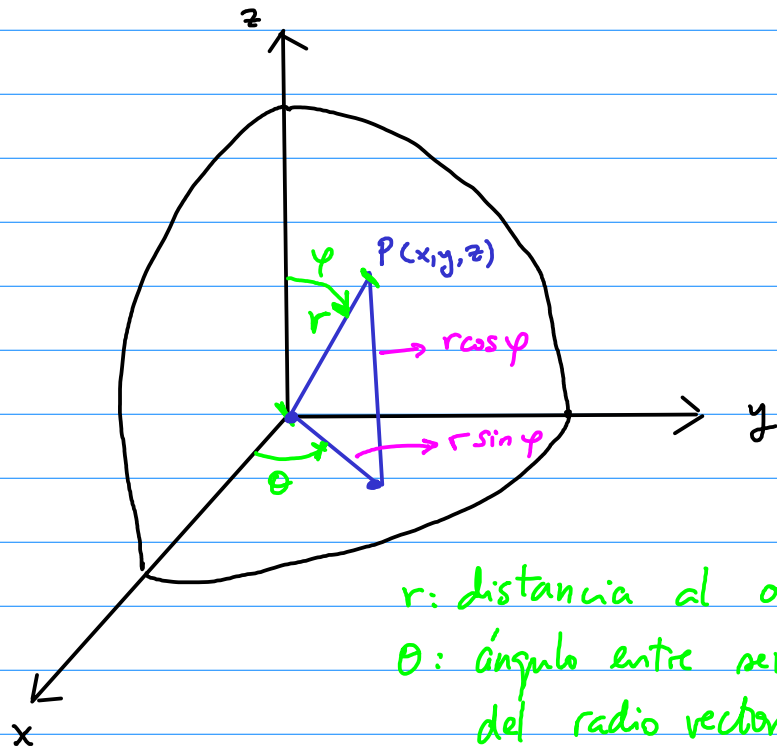 z
P(x,y,z)
φ
r
r cos φ
y
r sin φ
θ
r: distancia al
θ: ángulo entre
del radio vector
x